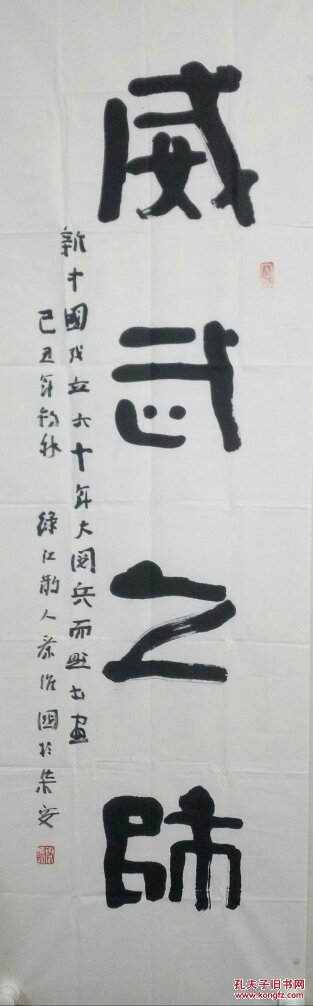 威武之師
新中國成立六十年大阅兵而題書畫
己丑年初秋 綠江散人蔡治國於集安
孔夫子旧书网